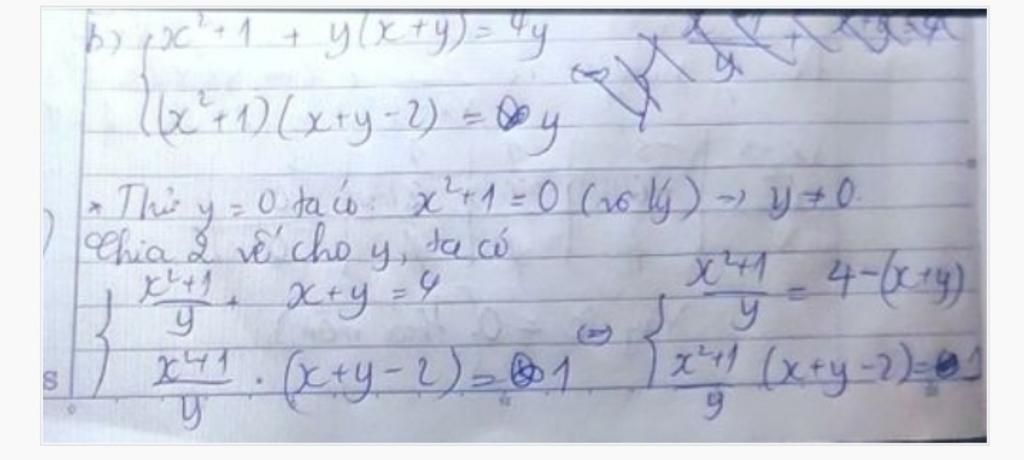 b) { x² + 1 + y(x+y) = 4y
(x²+1)(x+y-2) = y
* Thử y = 0 ta có: x²+1 = 0 (vô lý) → y ≠ 0.
Chia 2 vế cho y, ta có
{ (x²+1)/y + x+y = 4 ⇔ { (x²+1)/y = 4-(x+y)
(x²+1)/y . (x+y-2) = 1 (x²+1)/y (x+y-2) = 1
s